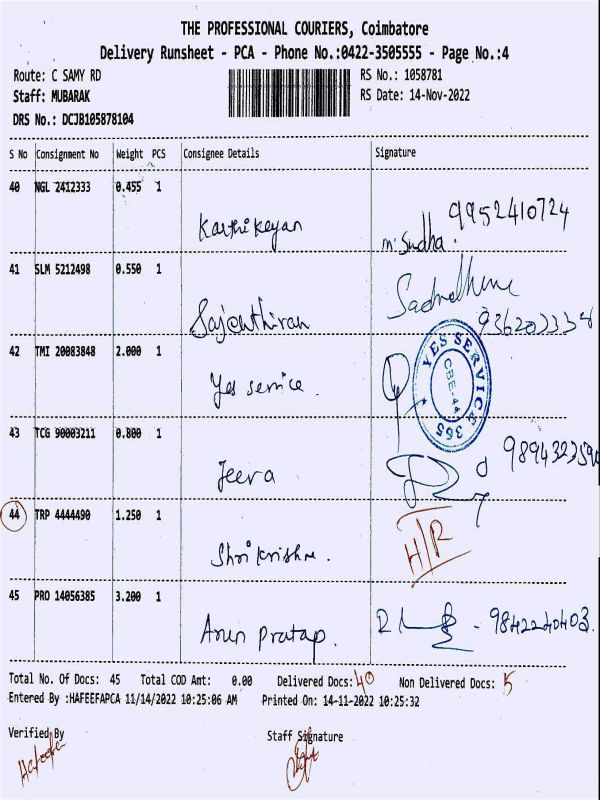 THE PROFESSIONAL COURIERS, Coimbatore
Delivery Runsheet - PCA - Phone No.:0422-3505555 - Page No.:4
Route: C SAMY RD
RS No.: 1058781
Staff: MUBARAK
RS Date: 14-Nov-2022
DRS No.: DCJB105878104
S No Consignment No Weight PCS Consignee Details Signature
40 NGL 2412333 0.455 1 Karthikeyan m.Sudha. 9952410724
41 SLM 5212498 0.550 1
42 TMI 20083848 2.000 1 Yes service.
YES SERVICE 365
CBE-44.
43 TCG 90003211 0.800 1 Jeeva
44 TRP 4444490 1.250 1 Shri Krishna. H/R
45 PRO 14056385 3.200 1 Arun Pratap. - 9842240403.
Total No. Of Docs: 45 Total COD Amt: 0.00 Delivered Docs: 40 Non Delivered Docs: 5
Entered By :HAFEEFAPCA 11/14/2022 10:25:06 AM Printed On: 14-11-2022 10:25:32
Verified By
Staff Signature